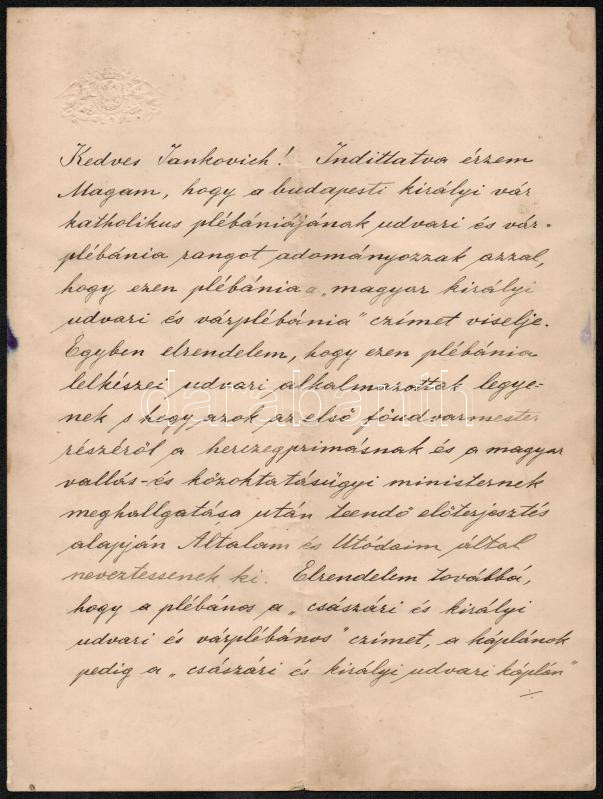 Kedves Jankovich! Indíttatva érzem
Magam, hogy a budapesti királyi vár
katholikus plébániájának udvari és vár-
plébánia rangot adományozzak azzal,
hogy ezen plébánia a „magyar királyi
udvari és várplébánia" czímet viselje.
Egyben elrendelem, hogy ezen plébánia
lelkészei udvari alkalmazottak legye-
nek s hogy azok az első főudvarmester
részéről a herczegprímásnak és a magyar
vallás- és közoktatásügyi ministernek
meghallgatása után teendő előterjesztés
alapján Általam és Utódaim által
neveztessenek ki. Elrendelem továbbá,
hogy a plébános a „császári és királyi
udvari és várplébános" czímet, a káplánok
pedig a „császári és királyi udvari káplán"
darabanth